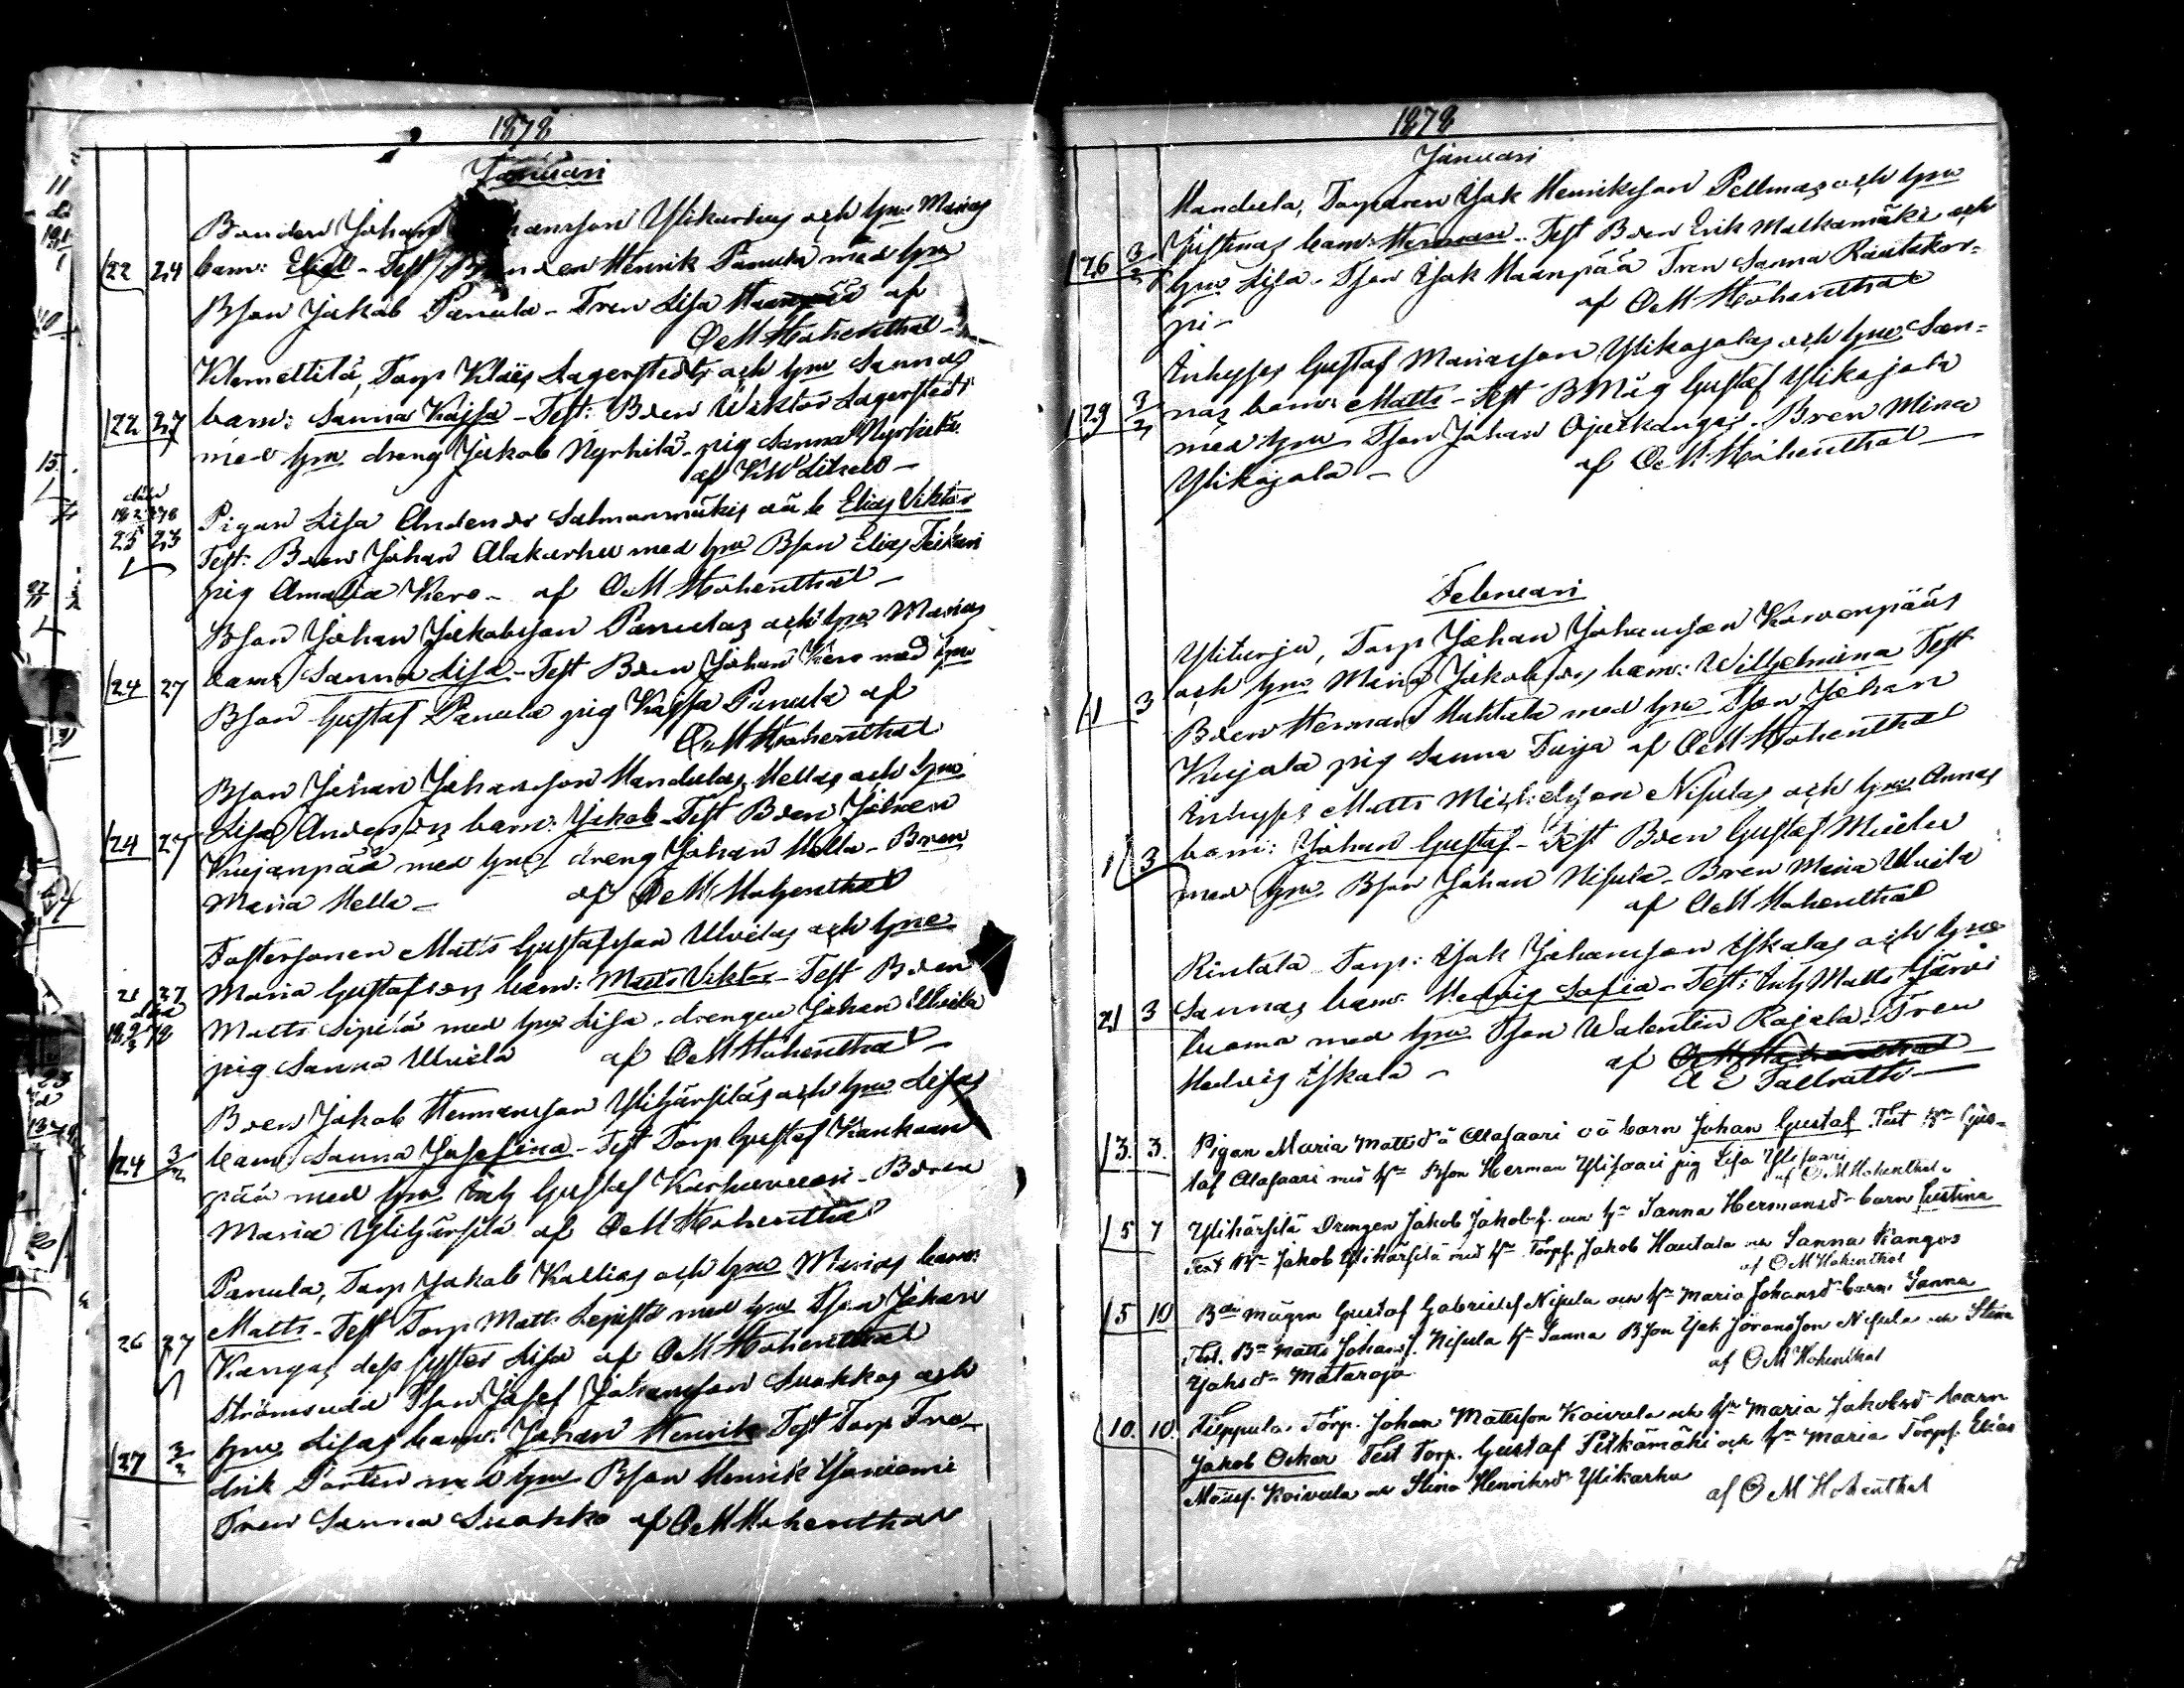 1878
Januari
Bonden Johan hansson Ylikarhus och hru Marias
22 24 barn: Eliel - Test Bonden Henrik Panula med hru
BSon Jakob Panula - Dren Lisa Haanpää af
OM Hohenthal -
Klemettilä, Torp Klaës Lagerstedts och hru Sannas
22 27 barn: Sanna Kajsa - Test: Bden Wiktor Lagerstedt
med hru dreng Jakob Nyrhilä - pig Sanna Nyrhilä
af KW Litzelo -
död
18 2/5 78
23 23
Pigan Lisa Andersdr Salmanmäkis oä b Elias Viktor
Test: Bden Johan Alakarhu med hru BSon Elias Teikari
pig Amalia Kero - af OM Hohenthal -
BSon Johan Jakobsson Panulas och hru Marias
24 27 barn Sanna Lisa - Test Bden Johan Kero med hru
BSon Gustaf Panula pig Kajsa Panula af
OM Hohenthal
BSon Johan Johansson Mandulas Mellas och hru
24 27 Lisa Andersdrs barn: Jakob - Test Bden Johan
Kujanpää med hru dreng Johan Mella - Bdren
Maria Mella - af OM Hohenthal
Fostersonen Matts Gustafsson Ulvilas och hru
21 27 Maria Gustafsdrs barn: Matts Viktor - Test Bden
död
Matts Sipilä med hru Lisa - drengen Johan Ulvila
pig Sanna Ulvila af OM Hohenthal -
Bden Jakob Hermansson Ylihärsiläs och hru Lisas
24 3/2 barn: Sanna Josefina - Test Torp Gustaf Kankaan
pää med hru Inh Gustaf Karhuvuori - Bdren
Maria Ylihärsilä af OM Hohenthal
Panula, Torp Jakob Kallias och hru Marias barn:
26 27 Matts - Test Torp Matts Lepistö med hru TSon Johan
Kangas dess syster Lisa af OM Hohenthal
Strömsudd TSon Josef Johansson Luokkas och
27 3/2 hru Lisas barn: Johan Henrik Test Torp Fre-
drik Porten med hru BSon Henrik Yliniemi
Dren Sanna Luokko af OM Hohenthal
1878
Januari
Mandula, Torparen Isak Henriksson Pellmas och hru
26 3/2 Justinas barn: Herman - Test Bden Erik Malkamäki och
hru Lisa - TSon Isak Haanpää Dren Sanna Rautakor-
pi - af OM Hohenthal
Inhyses Gustaf Mariasson Ylikojolas och hru San-
29 3/2 nas barn: Matts - Test BMåg Gustaf Ylikojola
med hru TSon Johan Ojutkangas - Bdren Mina
Ylikojola - af OM Hohenthal -
Februari
Yliturja, Torp Johan Johansson Korvenpääs
och hru Maria Jakobsdrs barn: Wilhelmina Test
1 3 Bden Herman Huhtala med hru TSon Johan
Kujala pig Sanna Turja af OM Hohenthal
Inhyses Matts Michelsson Nisulas och hru Annas
1 3 barn: Johan Gustaf - Test Bden Gustaf Mieder
med hru BSon Johan Nisula - Bdren Maria Ulvila
af OM Hohenthal
Rintala Torp: Isak Johansson Iskalas och hru
21 3 Sannas barn: Hedvig Sofia - Test: Inh Matts Järvi
luoma med hru TSon Walentin Rajala - Dren
Hedvig Iskala - af OM Hohenthal
A E Tallroth -
3. 3. Pigan Maria Mattsdr Alasaari oä barn Johan Gustaf Test Bn Gus-
taf Alasaari med hn BSon Herman Ylisaari pig Lisa Ylisaari
af OM Hohenthal
5 7 Ylihärsilä Drengen Jakob Jakobss. och hn Sanna Hermansd barn Justina
Test Bn Jakob Ylihärsilä med hn Torpf Jakob Hautala och Sanna Kangas
af OM Hohenthal
5 10 Bdn mågen Gustaf Gabrielss Nisula och hn Maria Johansd barn Sanna
Test. Bn Matts Johanss. Nisula hn Sanna BSon Isak Joransson Nisula och Stina
Jakisd Mataroja af OM Hohenthal
10. 10. Tieppula Torp. Johan Mattsson Koivula och hn Maria Jakobsd barn
Jakob Oskar Test Torp. Gustaf Pitkämäki och hn Maria Torpf. Elias
Koivula och Stina Henriksd Ylikarhu
af OM Hohenthal